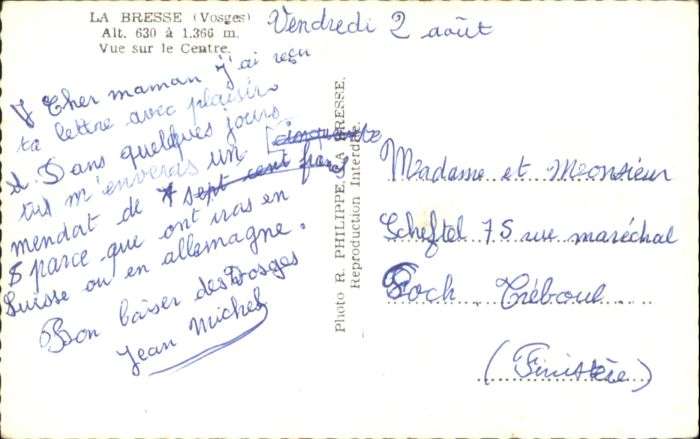 LA BRESSE (Vosges)
Alt. 630 à 1.366 m.
Vue sur le Centre.
Vendredi 2 août
Cher maman j'ai reçu
ta lettre avec plaisir.
Dans quelques jours
tu m'enveras un cinquante
mendat de sept cent franc
parce que ont iras en
Suisse ou en allemagne.
Bon baiser des Vosges
Jean Michel
Photo R. PHILIPPE, LA BRESSE.
Reproduction Interdite.
Madame et Monsieur
Scheftel 75 rue maréchal
Foch. Tréboul.
(Finistère)